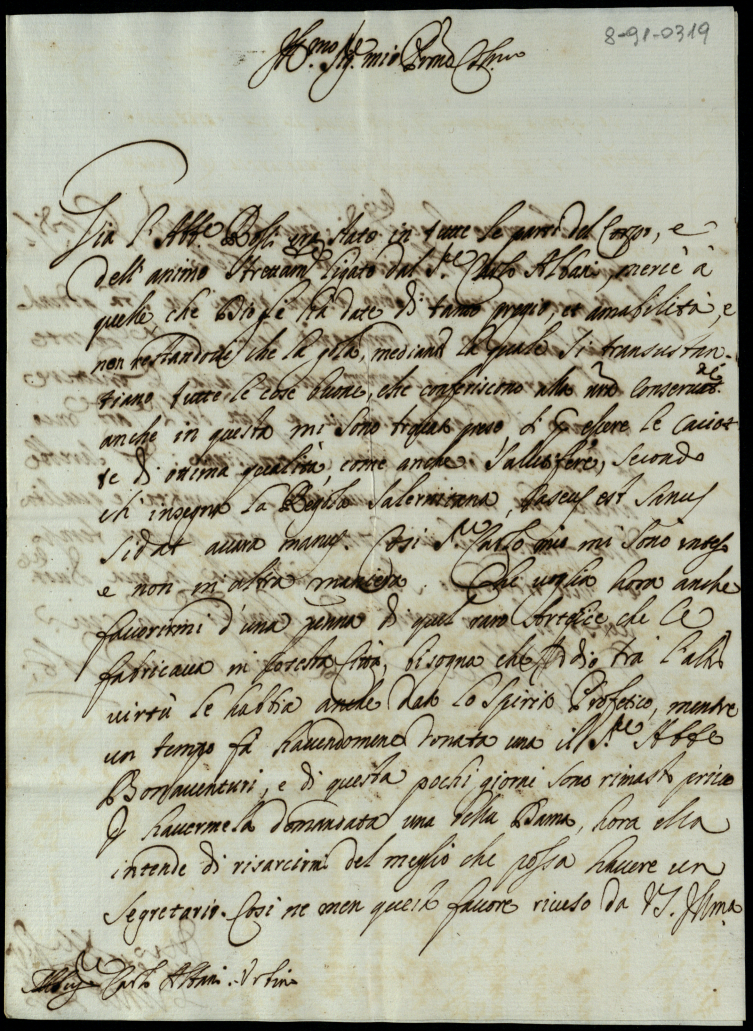 8-91-0319
Ill.mo Sig. mio Prone Col.mo
Già l'Abbe era stato in tutte le parti del Corpo, e
dell'animo ligato dal S.re Carlo Albani, mercè à
quelle, che Dio le hà date di tanto pregio, et amabilità, e
non restandole che la gola, mediante la quale si transustan-
tiano tutte le cose buone, che conferiscono alla nra conservat.ne
anche in questa mi sono trovato preso p essere le Caciot-
te di ottima qualità, come anche salutifere, secondo
ch'insegna la Regola Salernitana, Caseus est sanus
si dat avara manus. Così S.r Carlo mio mi sono inteso
e non in altra maniera. Che voglia hora anche
favorirmi d'una penna di quel raro Artefice che le
fabricava in cotesta Città, bisogna che Iddio tra l'altre
virtù le habbia anche dato lo Spirito Profetico, mentre
un tempo fà havendomene donata una il S.re Abbe
Bonaventuri, e di questa pochi giorni sono rimasto privo
p havermela domandata una bella Dama, hora ella
intende di risarcirmi del meglio che possa havere un
Segretario. Così ne men questo favore ricuso da VS. Illma
Carlo Albani. Urbino